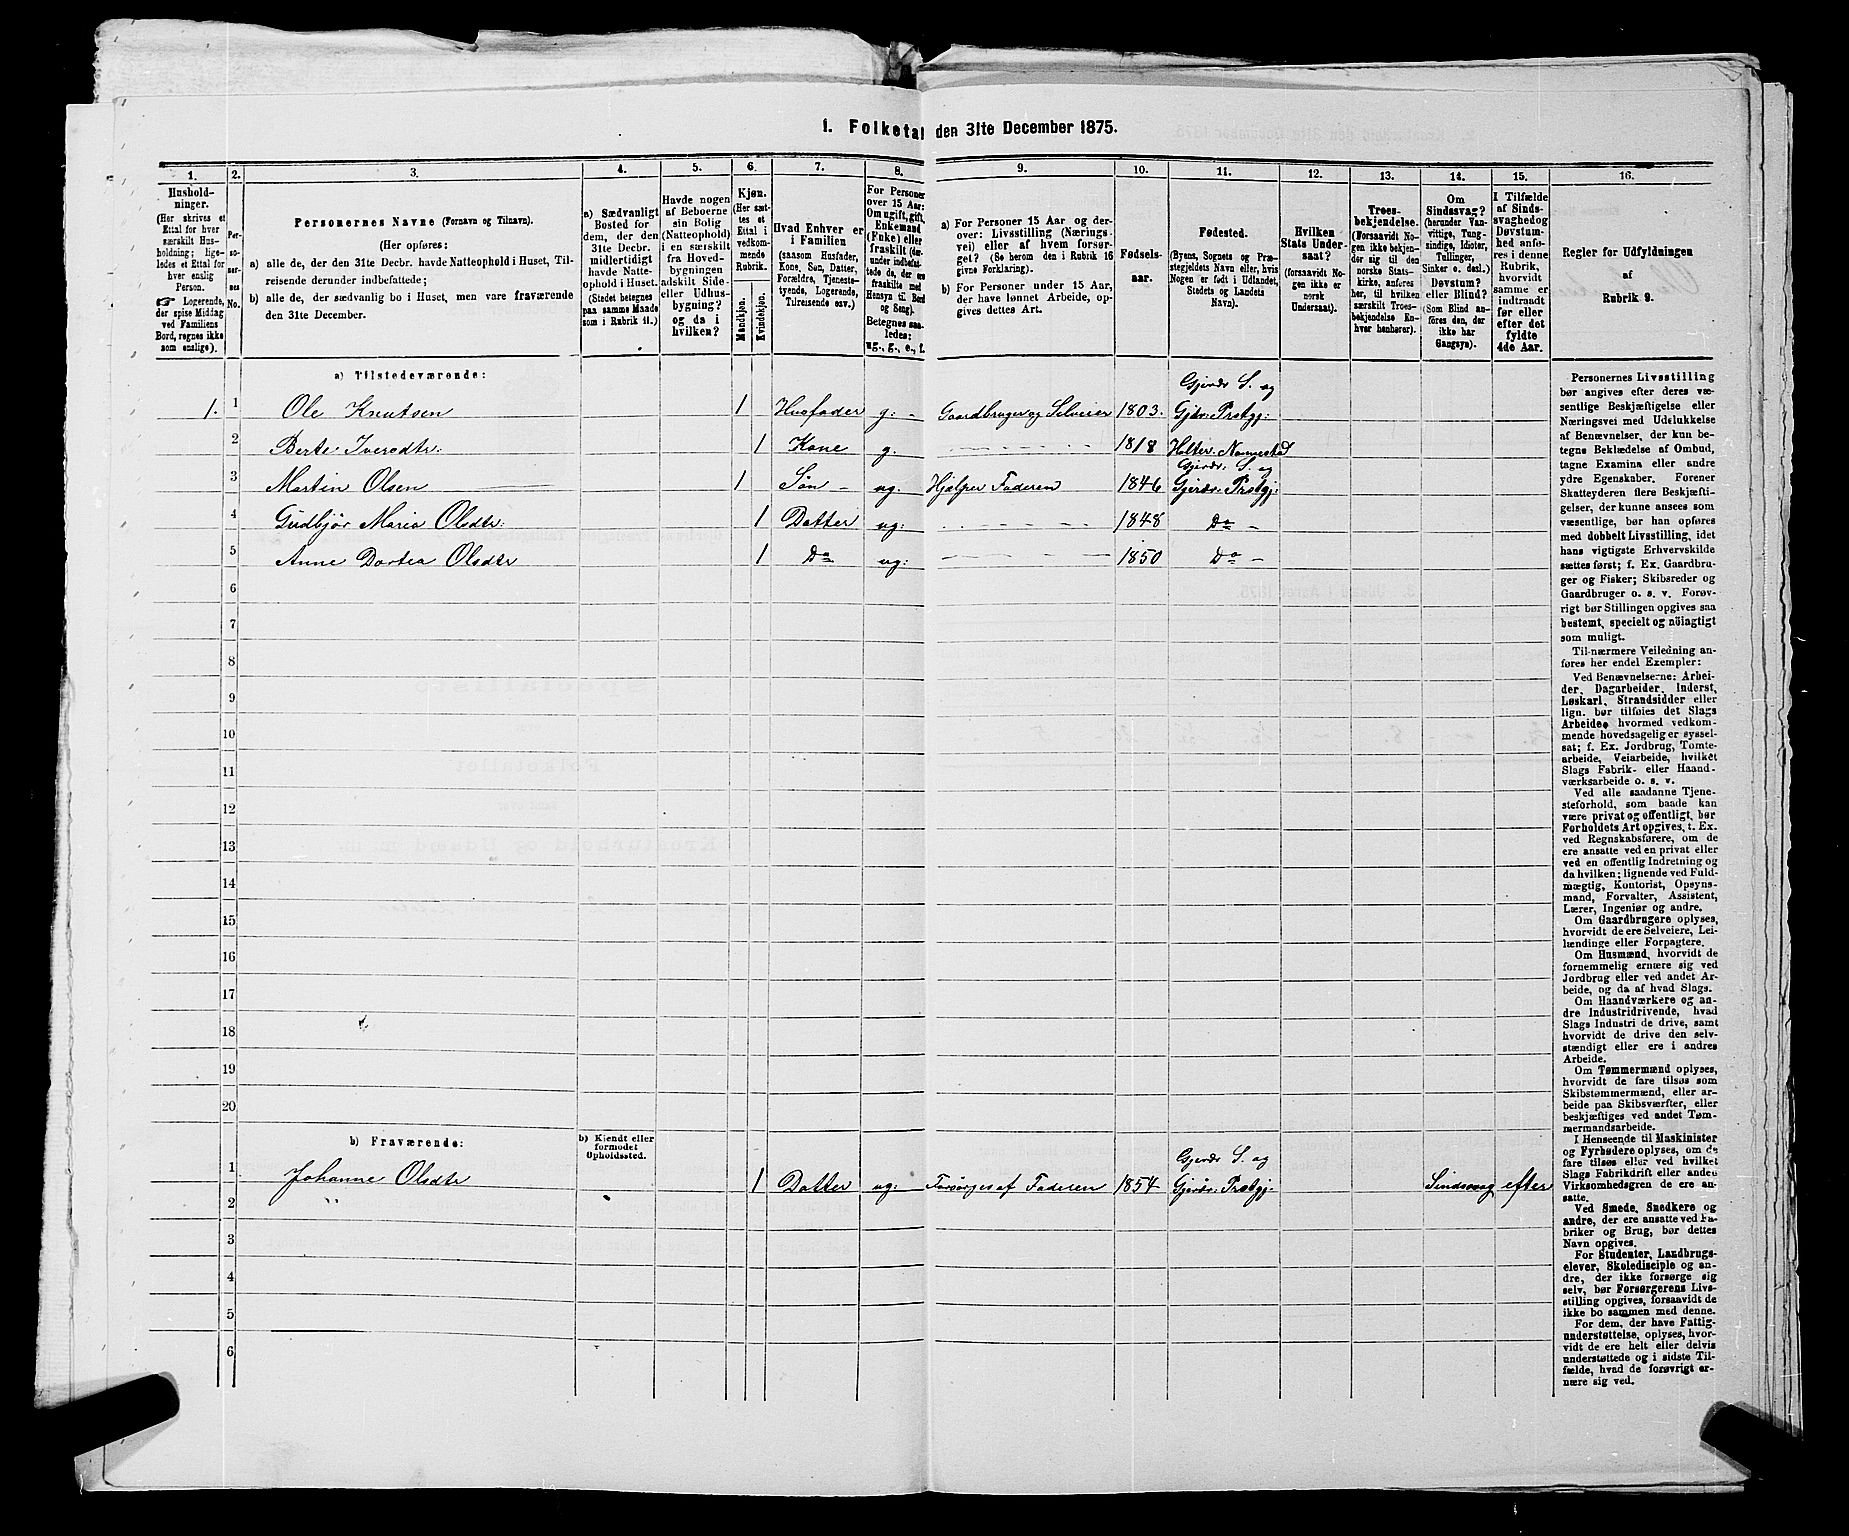 1. Folketal den 31te December 1875.
1.
2.
3.
4.
5.
6.
7.
8.
9.
10.
11.
12.
13.
14.
15.
16.
Hushold-
ninger.
(Her skrives et
Ettal for hver
særskilt Hus-
holdning; lige-
ledes et Ettal for
hver enslig
Person.
☞ Logerende,
der spise Middag
ved Familiens
Bord, regnes ikke
som enslige).
Per-
so-
ner-
nes
No.
Personernes Navne (Fornavn og Tilnavn).
(Her opføres:
a) alle de, der den 31te Decbr. havde Natteophold i Huset, Til-
reisende derunder indbefattede;
b) alle de, der sædvanlig bo i Huset, men vare fraværende
den 31te December.
a) Sædvanligt
Bosted for
dem, der den
31te Decbr.
midlertidigt
havde Natte-
ophold i Huset.
(Stedet betegnes
paa samme Maade
som i Rubrik 11.)
Havde nogen
af Beboerne
sin Bolig
(Natteophold)
i en særskilt
fra Hoved-
bygningen
adskilt Side-
eller Udhus-
bygning?
og da i
hvilken?
Kjøn.
(Her sæt-
tes et
Ettal i
vedkom-
mende
Rubrik.
Mandkjøn.
Kvindekjøn.
Hvad Enhver er
i Familien
(saasom Husfader,
Kone, Søn, Datter,
Forældre, Tjeneste-
tyende, Logerende,
Tilreisende osv.)
For Personer
over 15 Aar:
Om ugift, gift,
Enkemand
(Enke) eller
fraskilt (der-
under indbefat-
tede de, der ere
fraskilte med
Hensyn til Bord
og Seng).
Betegnes saa-
ledes:
ug., g., e., f.
a) For Personer 15 Aar og der-
over: Livsstilling (Nærings-
vei) eller af hvem forsør-
get? (Se herom den i Rubrik 16
givne Forklaring).
b) For Personer under 15 Aar,
der have lønnet Arbeide, op-
gives dettes Art.
Fødsels-
aar.
Fødested.
(Byens, Sognets og Præ-
stegjeldets Navn eller, hvis
Nogen er født i Udlandet,
Stedets og Landets
Navn).
Hvilken
Stats Under-
saat?
(forsaavidt No-
gen ikke er
norsk
Undersaat).
Troes-
bekjendelse.
(Forsaavidt No-
gen ikke bekjen-
der sig til den
norske Stats-
kirke, anføres
her, til hvilken
særskilt Troes-
bekjendelse En-
hver henhører).
Om
Sindssvag?
(herunder Van-
vittige, Tung-
sindige, Idioter,
Tullinger,
Sinker o. desl.)
Døvstum?
eller Blind?
(Som Blind an-
føres den, der
ikke har
Gangsyn).
I Tilfælde
af Sinds-
svaghed og
Døvstum-
hed anfø-
res i denne
Rubrik,
hvorvidt
samme er
indtraadt
før eller
efter det
fyldte
4de Aar.
Regler for Udfyldningen
af
Rubrik 9.
a) Tilstedeværende:
1. 1 Ole Knutsen 1 Husfader g: - Gaardbruger og Selveier 1803. Gjerdr S. og Gjdr: Prstgj:
2 Berte Iversdtr: 1 Kone g. 1818 Holter. Nannestad
3 Martin Olsen 1 Søn - ug. Hjælper Faderen 1846 Gjerdr: S. og Gjerdr: Prstgj:
4 Gudbjør Maria Olsdtr: 1 Datter ug: 1848 Do -
5 Anne Dortea Olsdtr 1 Do ug: 1850 Do -
6
7
8
9
10
11
12
13
14
15
16
17
18
19
20
b) Fraværende:
b) Kjendt eller
formodet
Opholdssted.
1 Johanne Olsdtr 1 Datter ug: Forsørges af Faderen 1854 Gjerdr S. og Gjerdr: Prstgj. Sindssvag efter
2 "
3
4
5
6
Personernes Livsstilling
bør angives efter deres væ-
sentlige Beskjæftigelse eller
Næringsvei med Udelukkelse
af Benævnelser, der kun be-
tegne Beklædelse af Ombud,
tagne Examina eller andre
ydre Egenskaber. Forener
Skatteyderen flere Beskjæfti-
gelser, der kunne ansees som
væsentlige, bør han opføres
med dobbelt Livsstilling, idet
hans vigtigste Erhvervskilde
sættes først; f. Ex. Gaardbru-
ger og Fisker; Skibsreder og
Gaardbruger o. s. v. Forøv-
rigt bør Stillingen opgives saa
bestemt, specielt og nöiagtigt
som muligt.
Til nærmere Veiledning an-
føres her endel Exempler:
Ved Benævnelserne: Arbei-
der, Dagarbeider, Inderst,
Løskarl, Strandsidder eller
lign. bør tilføies det Slags
Arbeide, hvormed vedkom-
mende hovedsagelig er syssel-
sat; f. Ex. Jordbrug, Tomte-
arbeide, Veiarbeide, hvilket
Slags Fabrik- eller Haand-
værksarbeide o. s. v.
Ved alle saadanne Tjene-
steforhold, som baade kan
være privat og offentligt, bør
Forholdets Art opgives, t. Ex.
ved Regnskabsførere, om de
ere ansatte ved en privat eller
ved en offentlig Indretning og
da hvilken; lignende ved Fuld-
mægtig, Kontorist, Opsyns-
mand, Forvalter, Assistent,
Lærer, Ingeniør og andre.
Om Gaardbrugere oplyses,
hvorvidt de ere Selveiere, Lei-
lændinge eller Forpagtere.
Om Husmænd, hvorvidt de
fornemmelig ernære sig ved
Jordbrug eller ved andet Ar-
beide, og da af hvad Slags.
Om Haandværkere og an-
dre Industridrivende, hvad
Slags Industri de drive, samt
hvorvidt de drive den selv-
stændigt eller ere i andres
Arbeide.
Om Tømmermænd oplyses,
hvorvidt de fare tilsøs som
Skibstømmermænd, eller ar-
beide paa Skibsværfter, eller
beskjæftiges ved andet Tøm-
mermandsarbeide.
I Henseende til Maskinister
og Fyrbødere oplyses, om de
fare tilsøs eller ved hvilket
Slags Fabrikdrift eller anden
Virksomhedsgren de ere an-
satte.
Ved Smede, Snedkere og
andre, der ere ansatte ved Fa-
briker og Brug, bør dettes
Navn opgives.
For Studenter, Landbrugs-
elever, Skoledisciple og an-
dre, der ikke forsørge sig
selv, bør Forsørgerens Livs-
stilling opgives, forsaavidt de
ikke bo sammen med denne.
For dem, der have Fattig-
understøttelse, oplyses, hvor-
vidt de ere helt eller delvis
understøttede og i sidste Til-
fælde, hvad de forøvrigt er-
nære sig ved.